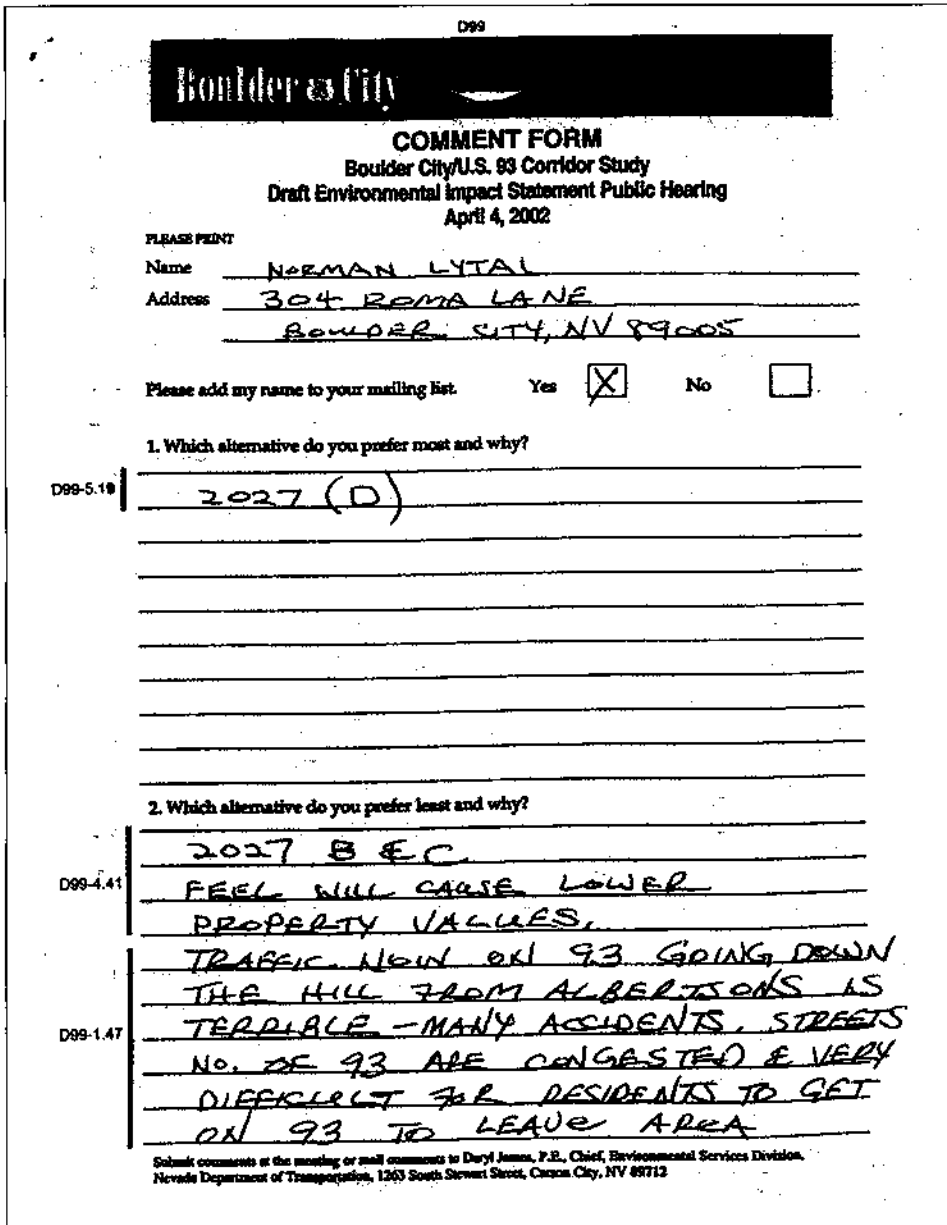 D99
Boulder City
COMMENT FORM
Boulder City/U.S. 93 Corridor Study
Draft Environmental Impact Statement Public Hearing
April 4, 2002
PLEASE PRINT
Name NORMAN LYTAL
Address 304 ROMA LANE
BOULDER CITY, NV 89005
Please add my name to your mailing list. Yes X No
1. Which alternative do you prefer most and why?
D99-5.19
2027 (D)
2. Which alternative do you prefer least and why?
2027 B & C
D99-4.41 FEEL WILL CAUSE LOWER
PROPERTY VALUES.
TRAFFIC NOW ON 93 GOING DOWN
THE HILL FROM ALBERTSONS IS
D99-1.47 TERRIBLE - MANY ACCIDENTS. STREETS
NO. OF 93 ARE CONGESTED & VERY
DIFFICULT FOR RESIDENTS TO GET
ON 93 TO LEAVE AREA
Submit comments at the meeting or mail comments to Daryl James, P.E., Chief, Environmental Services Division,
Nevada Department of Transportation, 1263 South Stewart Street, Carson City, NV 89712